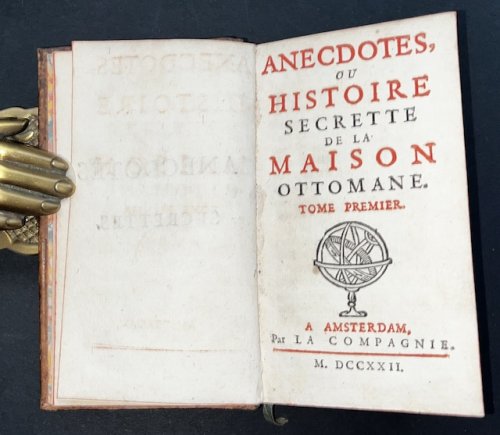 ANECDOTES,
OU
HISTOIRE
SECRETTE
DE LA
MAISON
OTTOMANE.
TOME PREMIER.
A AMSTERDAM,
Par LA COMPAGNIE.
M. DCCXXII.